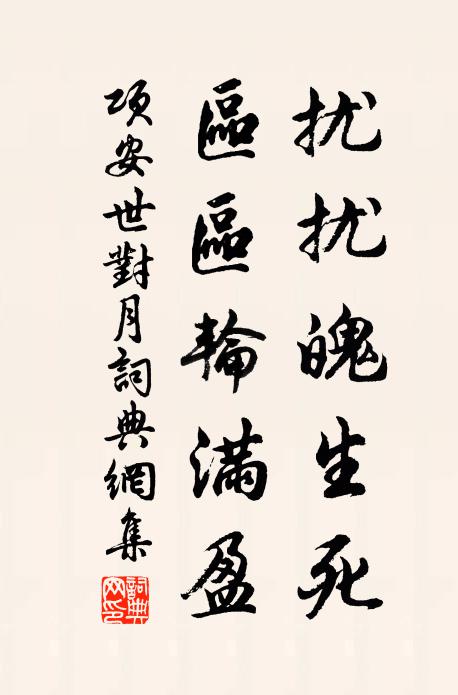 扰扰魄生死
區區輪滿盈
項安世對月詞典網集
詞典網印